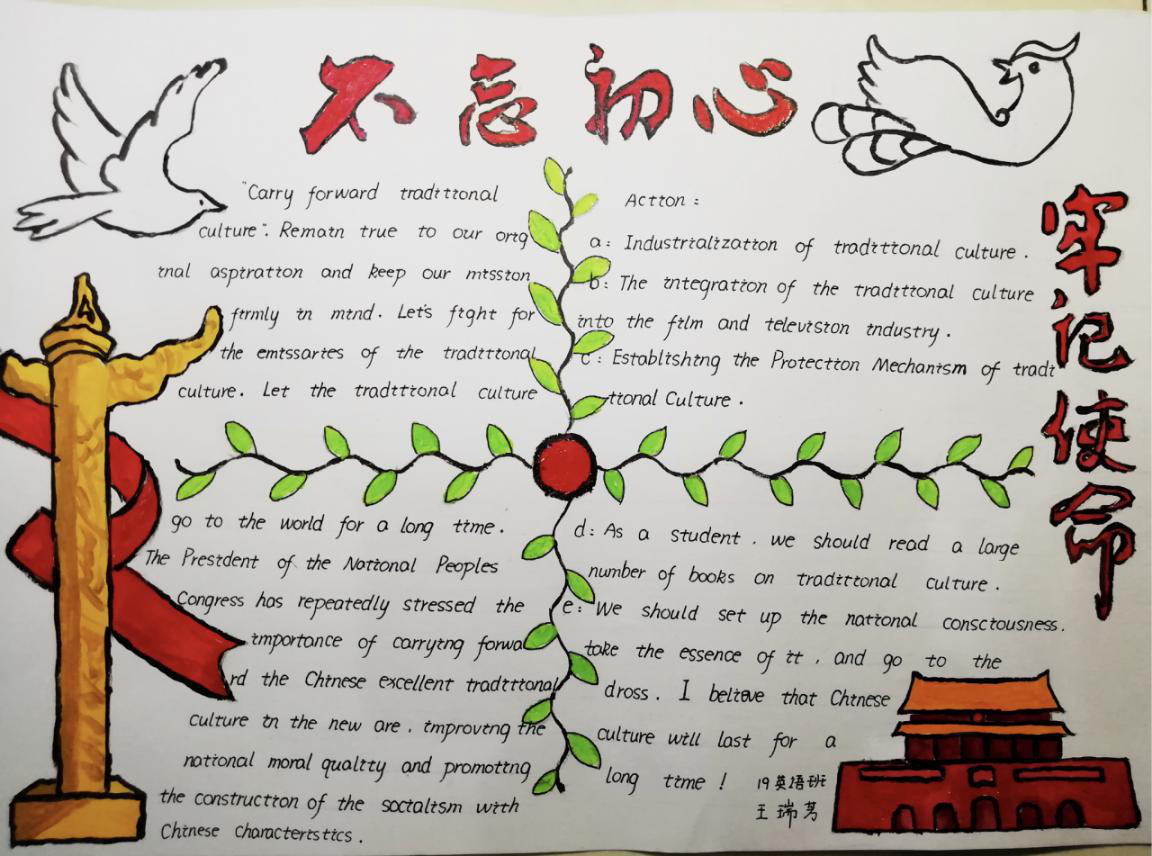 不忘初心
牢记使命
"Carry forward traditional
culture". Remain true to our orig
inal aspiration and keep our mission
firmly in mind. Let's fight for
the emissaries of the traditional
culture. Let the traditional culture
go to the world for a long time.
The President of the National Peoples
Congress has repeatedly stressed the
importance of carrying forwa
rd the Chinese excellent traditional
culture in the new are, improving the
national moral quality and promoting
the construction of the socialism with
Chinese characteristics.
Action:
a: Industrialization of traditional culture.
b: The integration of the traditional culture
into the film and television industry.
c: Establishing the Protection Mechanism of tradi
tional Culture.
d: As a student. we should read a large
number of books on traditional culture.
e: We should set up the national consciousness.
take the essence of it, and go to the
dross. I believe that Chinese
culture will last for a
long time!
19英语班
王瑞芳